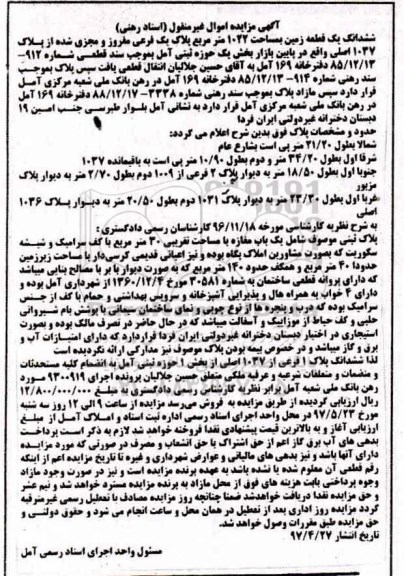 آگهی مزایده اموال غیرمنقول (اسناد رهنی)
ششدانگ یک قطعه زمین بمساحت ۱۰۲۲ متر مربع پلاک یک فرعی مفروز و مجزی شده از پلاک
۱۰۳۷ اصلی واقع در پایین بازار بخش یک حوزه ثبتی آمل بموجب سند قطعی شماره ۹۱۲-
۸۵/۱۲/۱۳ دفترخانه ۱۶۹ آمل به آقای حسین جلالیان انتقال قطعی یافت سپس پلاک بموجب
سند رهنی شماره ۹۱۴- ۸۵/۱۲/۱۳ دفترخانه ۱۶۹ آمل در رهن بانک ملی شعبه مرکزی آمل
قرار دارد سپس مازاد پلاک بموجب سند رهنی شماره ۳۳۳۸- ۸۸/۱۲/۱۷ دفترخانه ۱۶۹ آمل
در رهن بانک ملی شعبه مرکزی آمل قرار دارد به نشانی آمل بلوار طبرسی جنب امین ۱۹
دبستان دخترانه غیردولتی ایران فردا
حدود و مشخصات پلاک فوق بدین شرح اعلام می گردد:
شمالا بطول ۲۱/۲۰ متر پی است بشارع عام
شرقا اول بطول ۳۴/۲۰ متر و دوم بطول ۱۰/۹۰ متر پی است به باقیمانده ۱۰۳۷
جنوبا اول بطول ۱۸/۵۰ متر به دیوار پلاک ۲ فرعی از ۱۰۰۹ دوم بطول ۲/۷۰ متر به دیوار پلاک
مزبور
غربا اول بطول ۲۳/۳۰ متر به دیوار پلاک ۱۰۳۱ دوم بطول ۲۰/۵۰ متر به دیوار پلاک ۱۰۳۶
اصلی
به شرح نظریه کارشناسی مورخه ۹۶/۱۱/۱۸ کارشناسان رسمی دادگستری :
پلاک ثبتی موصوف شامل یک باب مغازه با مساحت تقریبی ۳۰ متر مربع با کف سرامیک و شیشه
سکوریت که بصورت مشاورین املاک پگاه بوده و نیز اعیانی قدیمی کرسی‌دار با مساحت زیرزمین
حدودا ۴۰ متر مربع و همکف حدود ۱۴۰ متر مربع که به صورت دیوار با بر با مصالح بنایی میباشد
که دارای پروانه قطعی ساختمان به شماره ۳۰۵۸۱ مورخ ۱۳۶۰/۱۲/۴ از شهرداری آمل بوده و
دارای ۴ خواب به همراه هال و پذیرایی آشپزخانه و سرویس بهداشتی و حمام با کف از جنس
سرامیک بوده که درب و پنجره ها از نوع چوبی و نمای ساختمان سیمانی با پوشش بام شیروانی
حلبی و کف حیاط از موزاییک و آسفالت میباشد که در حال حاضر در تصرف مالک بوده و بصورت
استیجاری در اختیار دبستان دخترانه غیردولتی ایران فردا قراردارد که دارای امتیازات آب و
برق و گاز میباشد و در خصوص بیمه بودن پلاک موصوف نیز مدارکی ارائه نگردیده است
لذا ششدانگ پلاک ۱ فرعی از ۱۰۳۷ اصلی از بخش ۱ حوزه ثبتی آمل به انضمام کلیه مستحدثات
و منضمات و متعلقات شرعیه و عرفیه ملکی متعلق به حسین جلالیان پرونده اجرای ۹۳۰۰۹۱۹ مورد
رهن بانک ملی شعبه آمل برابر نظریه کارشناس رسمی دادگستری به مبلغ ۱۲/۸۰۰/۰۰۰/۰۰۰
ریال ارزیابی گردیده از طریق مزایده به فروش می‌رسد مزایده از ساعت ۹ الی ۱۲ روز سه شنبه
مورخ ۹۷/۵/۲۳ در محل واحد اجرای اسناد رسمی اداره ثبت اسناد و املاک آمل از مبلغ
ارزیابی آغاز و به بالاترین قیمت پیشنهادی نقدا فروخته خواهد شد لازم به ذکر است پرداخت
بدهی های آب برق گاز اعم از حق اشتراک یا حق انشعاب و مصرف در صورتی که مورد مزایده
دارای آنها باشد و نیز بدهی های مالیاتی و عوارض شهرداری و غیره تا تاریخ مزایده اعم از اینکه
رقم قطعی آن معلوم شده یا نشده باشد به عهده برنده مزایده است و نیز در صورت وجود مازاد
وجوه پرداختی بابت هزینه های فوق از محل مازاد به برنده مزایده مسترد خواهد شد و نیم عشر
و حق مزایده نقدا دریافت خواهدشد ضمنا چنانچه روز مزایده مصادف با تعطیل رسمی غیرمترقبه
گردد مزایده روز اداری بعد از تعطیل در همان محل و ساعت انجام می شود و حقوق دولتی و
حق مزایده طبق مقررات وصول خواهد شد.
تاریخ انتشار ۹۷/۴/۲۷
مسئول واحد اجرای اسناد رسمی آمل